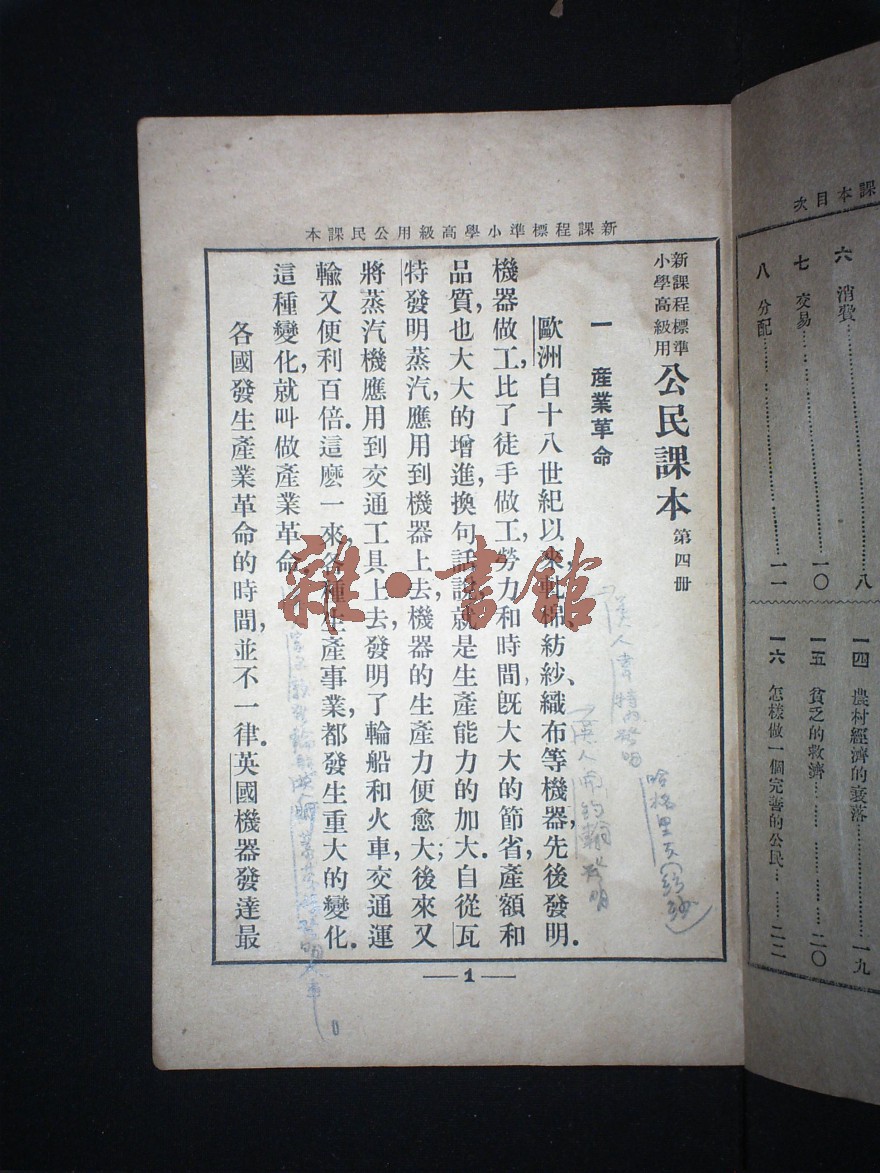 新課程標準小學高級用公民課本
新課程標準
小學高級用
公民課本 第四册
一 產業革命
歐洲自十八世紀以來,軋棉、紡紗、織布等機器,先後發明.
機器做工,比了徒手做工,勞力和時間,旣大大的節省,產額和
品質,也大大的增進,換句話說,就是生產能力的加大.自從瓦
特發明蒸汽,應用到機器上去,機器的生產力便愈大;後來又
將蒸汽機應用到交通工具上去,發明了輪船和火車,交通運
輸又便利百倍.這麽一來,各種生產事業,都發生重大的變化.
這種變化,就叫做產業革命.
各國發生產業革命的時間,並不一律.英國機器發達最
1
雜·書館
課本目次
六 消費 八
七 交易 一〇
八 分配 一一
一四 農村經濟的衰落 一九
一五 貧乏的救濟 二〇
一六 怎樣做一個完善的公民 二二